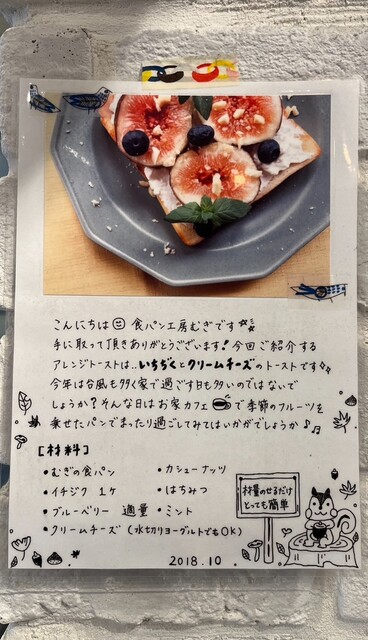 こんにちは 食パン工房むぎです
手に取って頂きありがとうございます!今回ご紹介する
アレンジトーストは..いちぢくとクリームチーズのトーストです
今年は台風も多く家で過ごす日も多いのではないで
しょうか?そんな日はお家カフェ で季節のフルーツを
乗せたパンでまったり過ごしてみてはいかがでしょうか♪♫
[材料]
・むぎの食パン
・イチジク 1ケ
・ブルーベリー 適量
・クリームチーズ(水切りヨーグルトでもOK)
・カシューナッツ
・はちみつ
・ミント
材量のせるだけ
とっても簡単
2018.10